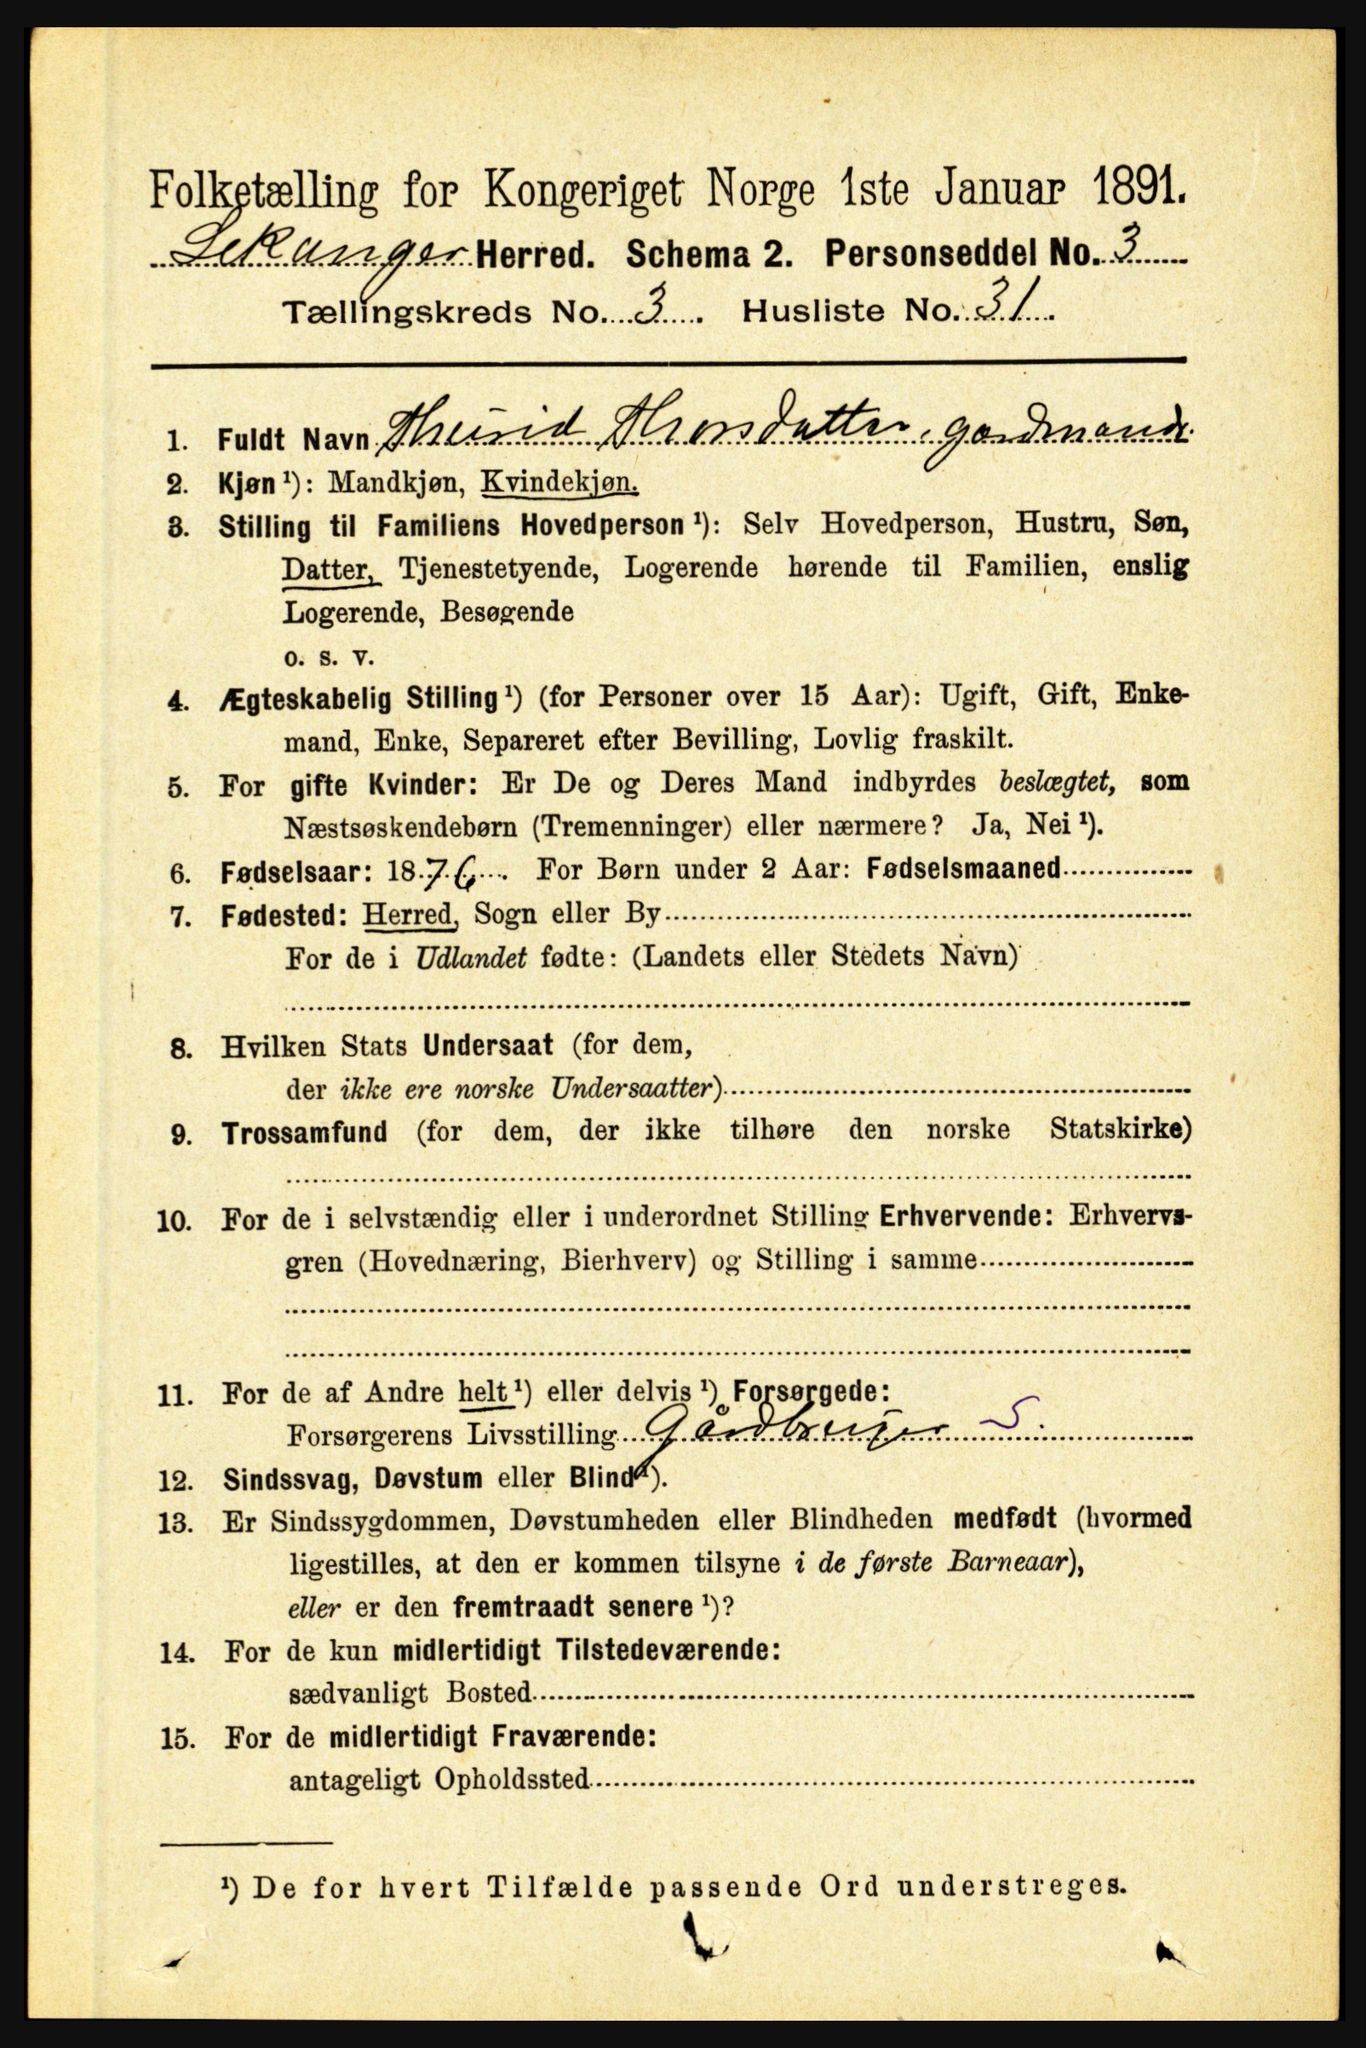 Folketælling for Kongeriget Norge 1ste Januar 1891.
Lekanger Herred. Schema 2. Personseddel No. 3
Tællingskreds No. 3. Husliste No. 31.
1. Fuldt Navn Thurid Thorsdatter,
2. Kjøn ¹): Mandkjøn, Kvindekjøn.
3. Stilling til Familiens Hovedperson ¹): Selv Hovedperson, Hustru, Søn,
Datter, Tjenestetyende, Logerende hørende til Familien, enslig
Logerende, Besøgende
o. s. v.
4. Ægteskabelig Stilling ¹) (for Personer over 15 Aar): Ugift, Gift, Enke-
mand, Enke, Separeret efter Bevilling, Lovlig fraskilt.
5. For gifte Kvinder: Er De og Deres Mand indbyrdes beslægtet, som
Næstsøskendebørn (Tremenninger) eller nærmere? Ja, Nei ¹).
6. Fødselsaar: 1876. For Børn under 2 Aar: Fødselsmaaned
7. Fødested: Herred, Sogn eller By
For de i Udlandet fødte: (Landets eller Stedets Navn)
8. Hvilken Stats Undersaat (for dem,
der ikke ere norske Undersaatter)
9. Trossamfund (for dem, der ikke tilhøre den norske Statskirke)
10. For de i selvstændig eller i underordnet Stilling Erhvervende: Erhvervs-
gren (Hovednæring, Bierhverv) og Stilling i samme
11. For de af Andre helt ¹) eller delvis ¹) Forsørgede:
Forsørgerens Livsstilling Gårdbruger S.
12. Sindssvag, Døvstum eller Blind ¹).
13. Er Sindssygdommen, Døvstumheden eller Blindheden medfødt (hvormed
ligestilles, at den er kommen tilsyne i de første Barneaar),
eller er den fremtraadt senere ¹)?
14. For de kun midlertidigt Tilstedeværende:
sædvanligt Bosted
15. For de midlertidigt Fraværende:
antageligt Opholdssted
¹) De for hvert Tilfælde passende Ord understreges.